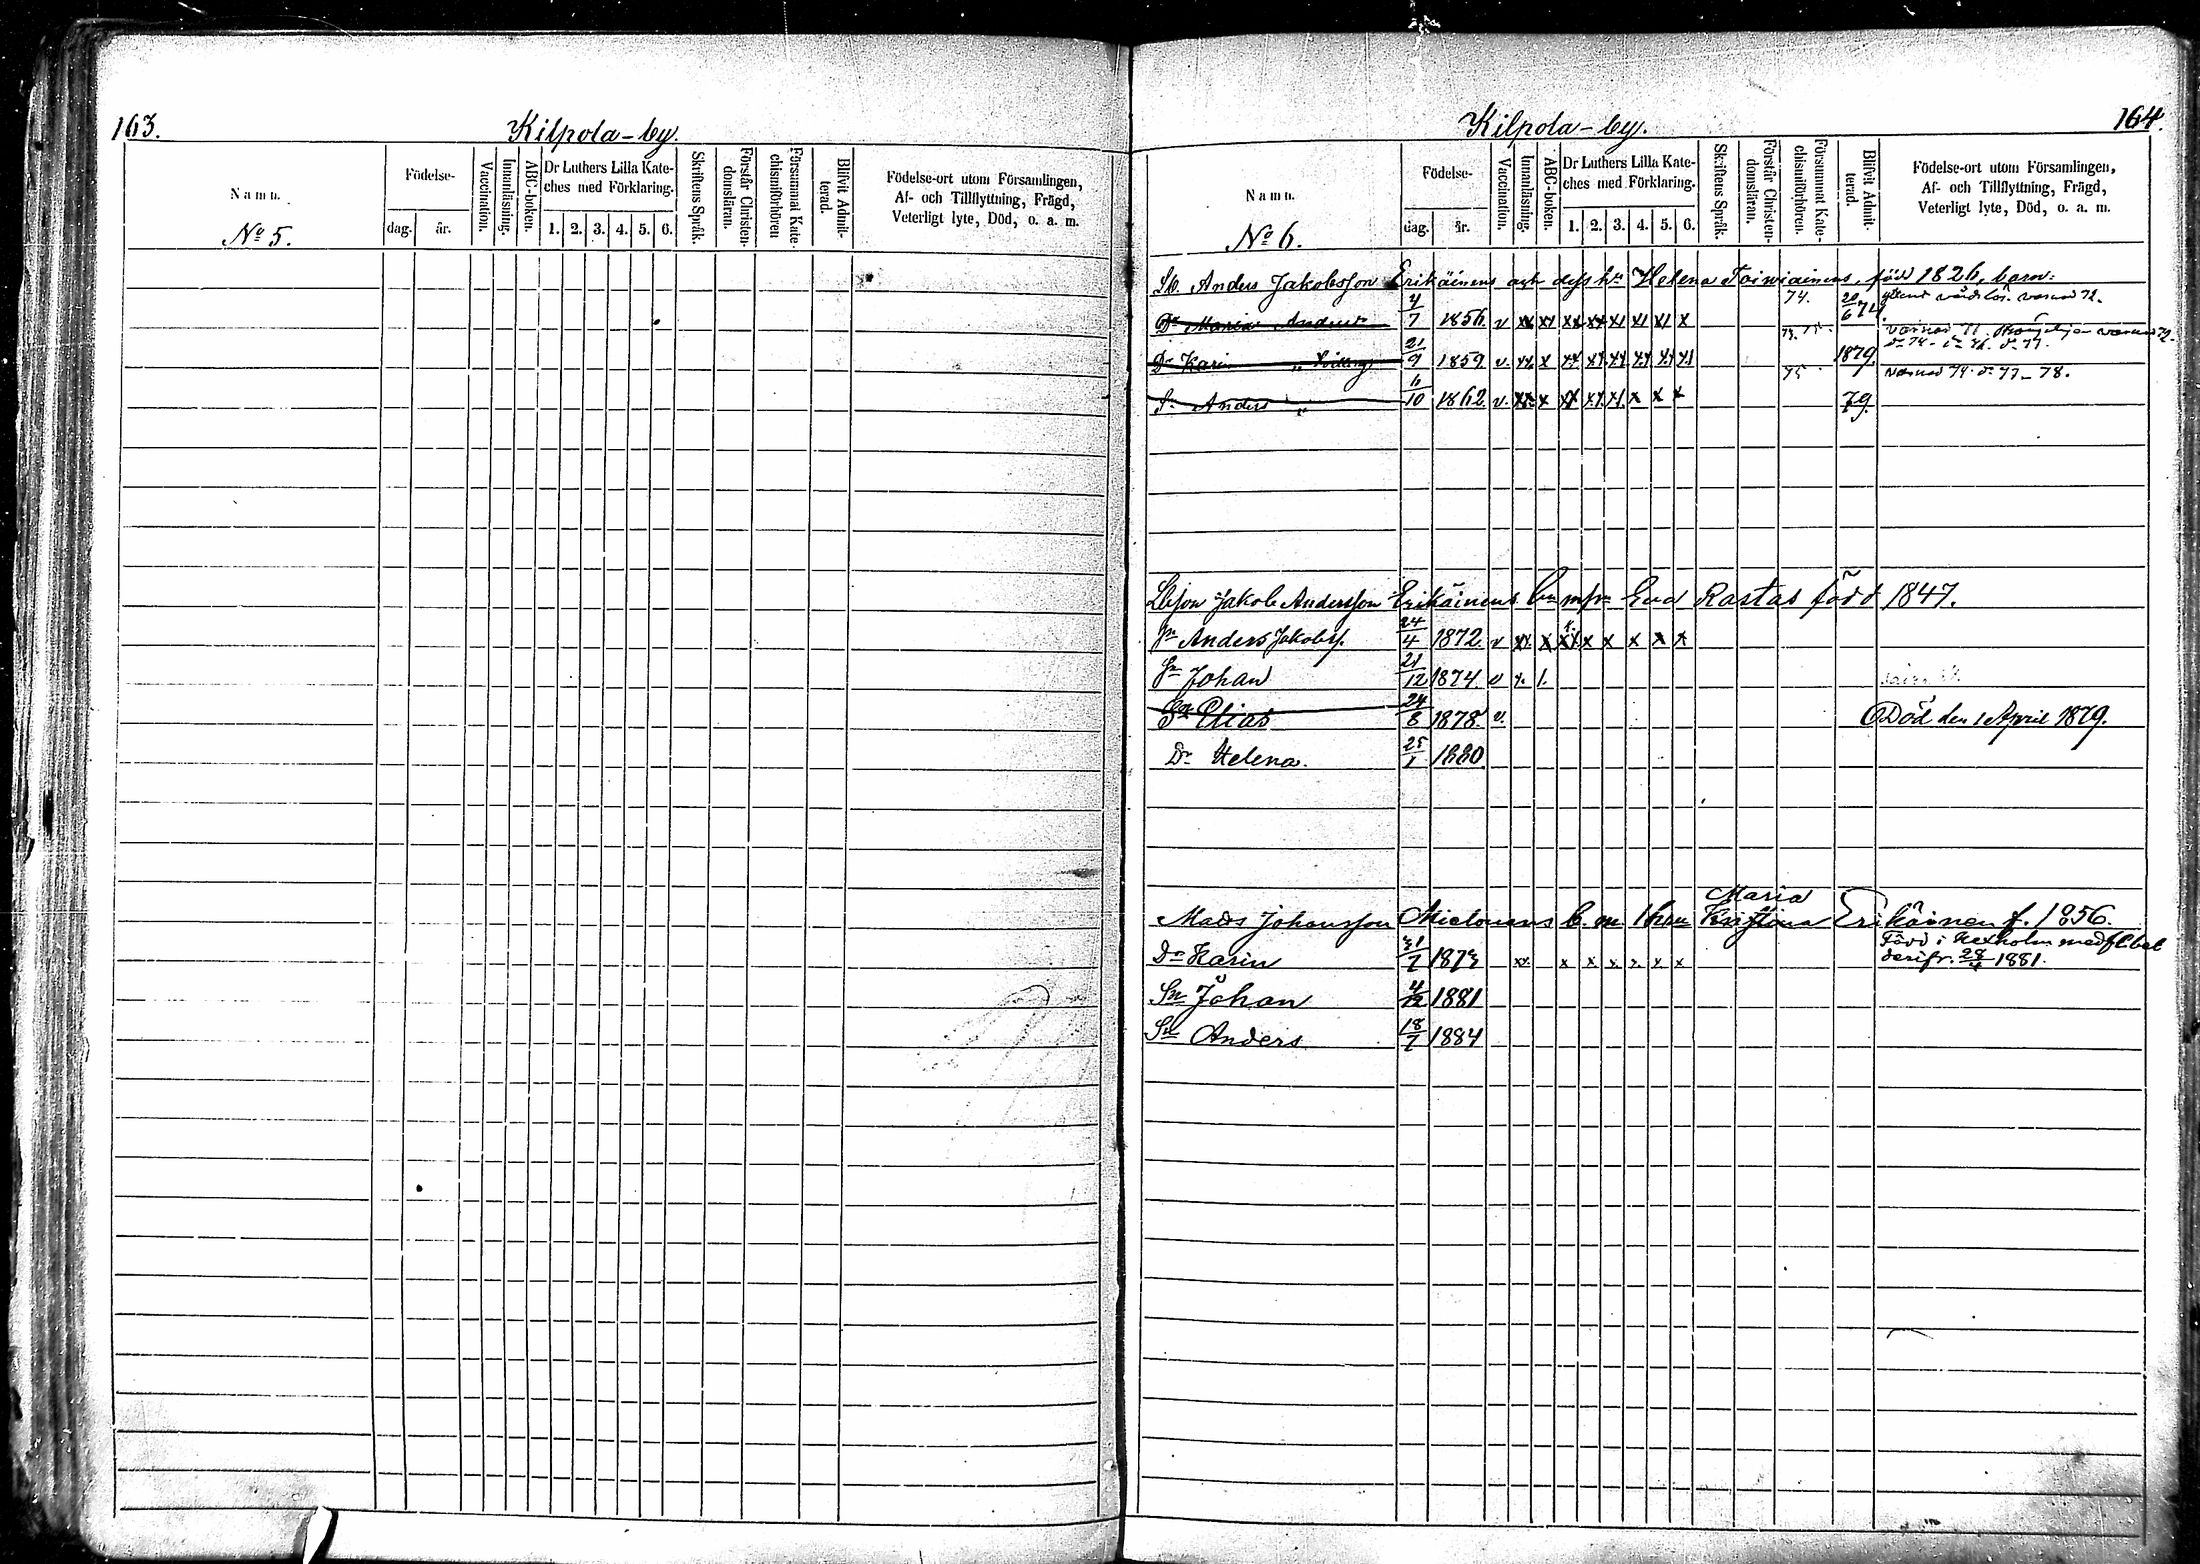 163.
Kilpola-by.
Namn.
No 5.
Födelse-
dag. år.
Vaccination.
Innanläsning.
ABC-boken.
Dr Luthers Lilla Kate-
ches med Förklaring.
1. 2. 3. 4. 5. 6.
Skriftens Språk.
Förstår Christen-
domsläran.
Försummat Kate-
chismiförhören
Blifvit Admit-
terad.
Födelse-ort utom Församlingen,
Af- och Tillflyttning, Frägd,
Veterligt lyte, Död, o. a. m.
164.
Kilpola-by.
Namn.
No 6.
Födelse-
dag. år.
Vaccination.
Innanläsning.
ABC-boken.
Dr Luthers Lilla Kate-
ches med Förklaring.
1. 2. 3. 4. 5. 6.
Skriftens Språk.
Förstår Christen-
domsläran.
Försummat Kate-
chismiförhören.
Blifvit Admit-
terad.
Födelse-ort utom Församlingen,
Af- och Tillflyttning, Frägd,
Veterligt lyte, Död, o. a. m.
Anders Jakobsson Erikäinens och dess hu Helena Toiviainens, född 1826, barn:
Dr Maria Andersdr 4/7 1856 v xx x xx xx x x x x 74. 20/6 74. varnad 72.
Dr Karin " 21/9 1859 v. xx x 1879. varnad 72.
Sn Anders " 6/10 1862 v. xx x xx x x x 75 79. varnad 74. 77-78.
Jakob Andersson Erikäinens b. m. Eva Rastas född 1847.
Sn Anders Jakobss. 24/4 1872 v xx x x x x x x
Sn Johan 21/12 1874 v x 1.
Sn Elias 24/8 1878 v. Död den 1 April 1879.
Dr Helena. 25/1 1880
Mads Johansson Mielonens b. m. Maria Kristina Erikäinen f. 1856.
Dr Karin 31/7 1873 xx x x x x x x Född i Kexholm med fl.bet
derifr. 28/4 1881.
Sn Johan 4/12 1881
Sn Anders 18/7 1884